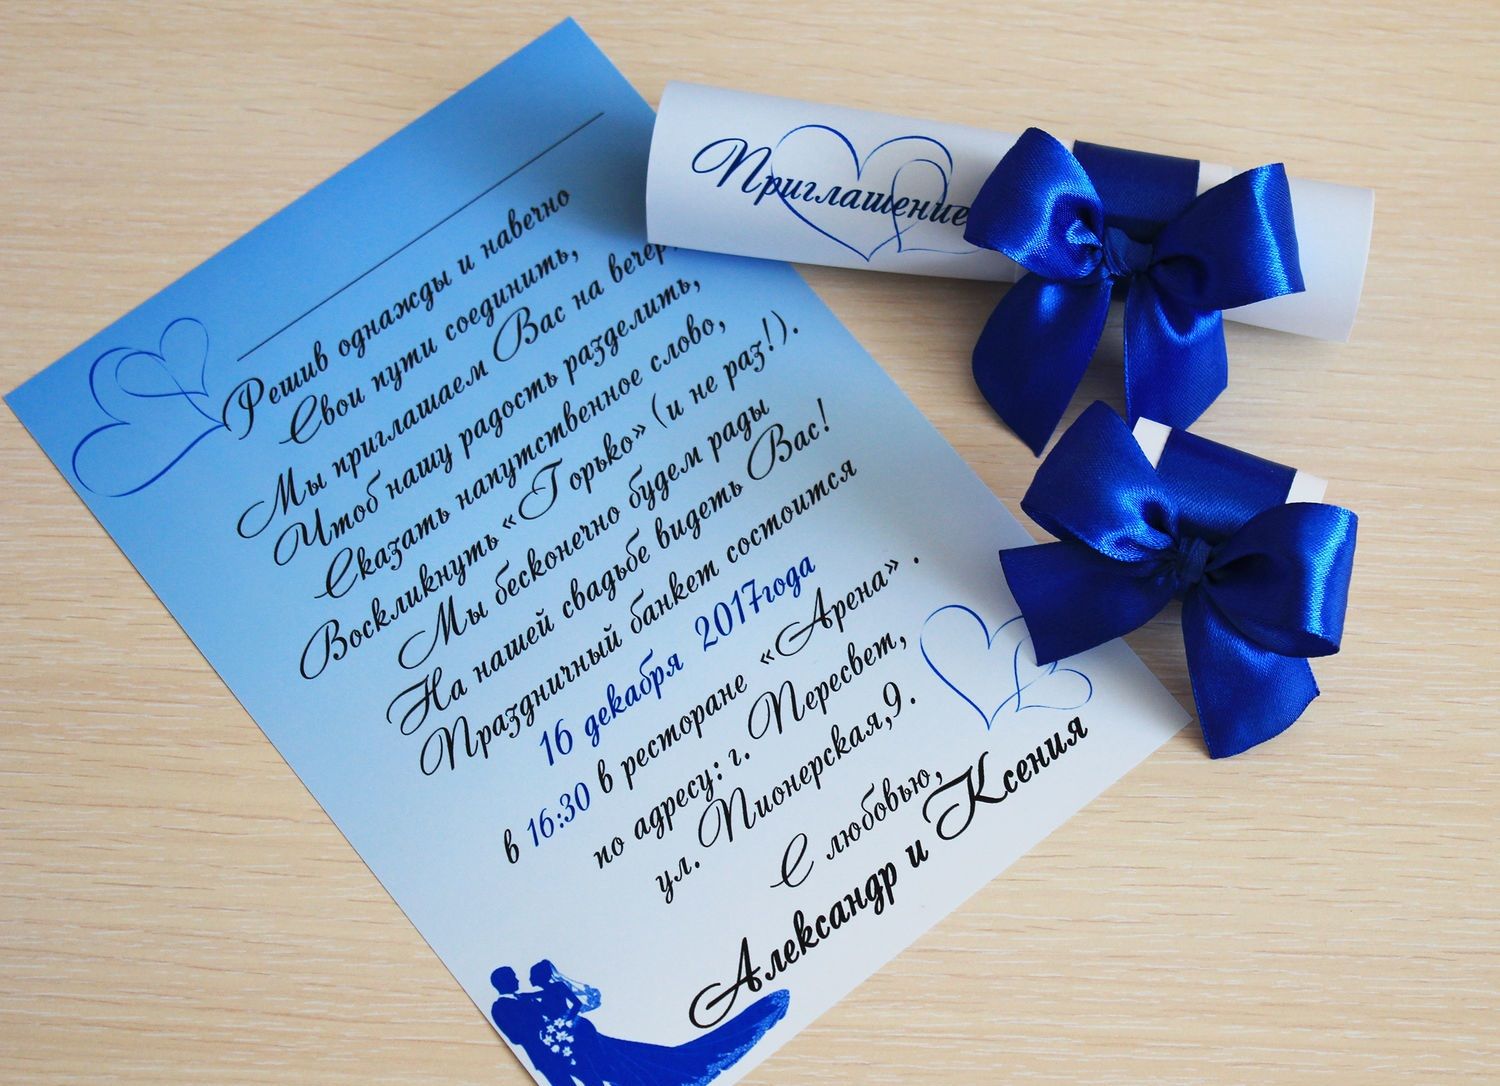 Приглашение
Решив однажды и навечно
Свои пути соединить,
Мы приглашаем Вас на вечер
Чтоб нашу радость разделить,
Сказать напутственное слово,
Воскликнуть «Горько» (и не раз!).
Мы бесконечно будем рады
На нашей свадьбе видеть Вас!
Праздничный банкет состоится
16 декабря 2017года
в 16:30 в ресторане «Арена» .
по адресу: г. Пересвет,
ул. Пионерская,9.
С любовью,
Александр и Ксения